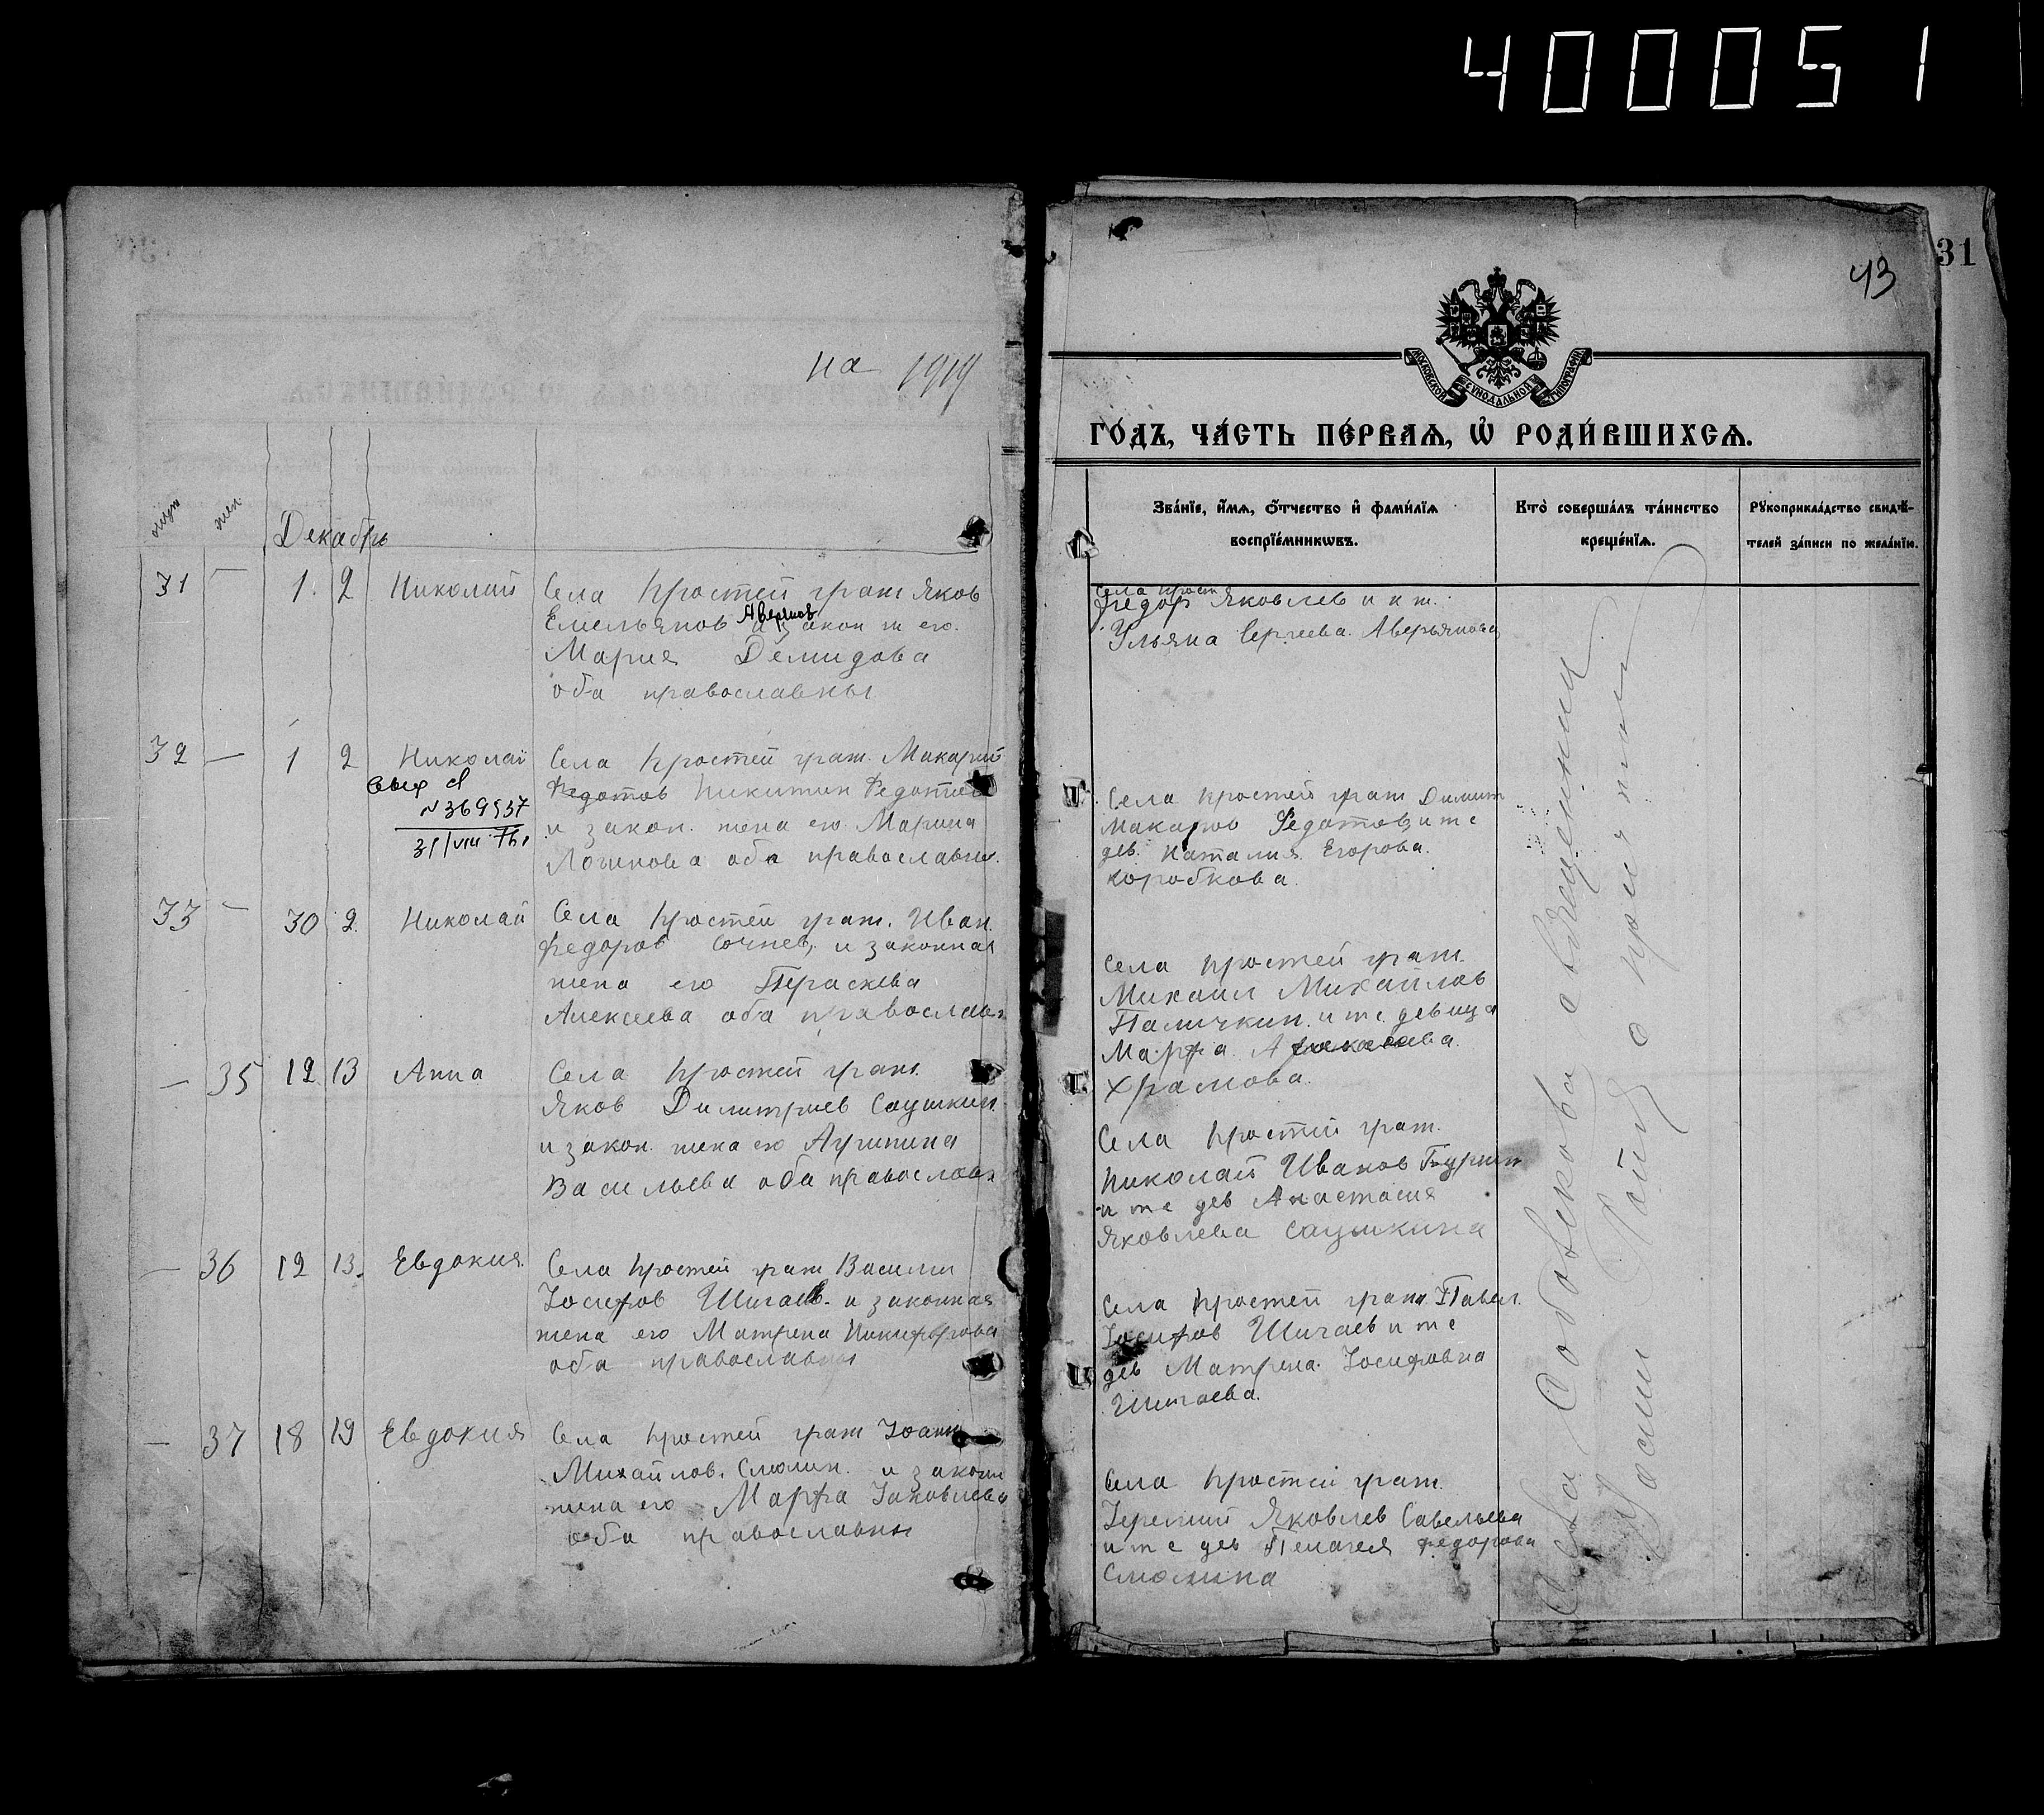 400051
на 1919
муж жен
Декабрь
31 — 1. 2 Николай Села Кростей граж Яков
Емельянов Аверьянов и закон ж его.
Мария Демидова
оба православны
32 — 1 2 Николай Села Кростей граж. Макарий
Федотов Никитин Федотов
и закон. жена его Марина
Логинова оба православны.
№ 369537
31/VIII
33 — 30 2. Николай Села Кростей граж. Иван.
Федоров Сочнев, и законная
жена его Параскева
Алексеева оба православн
— 35 12 13 Анна Села Кростей граж.
Яков Димитриев Саушкин.
и закон. жена его Агрипина
Васильева оба православн
— 36 12 13. Евдокия. Села Кростей граж Василий
Иосифов Шигаев. и законная
жена его Матрена Никифорова
оба православны
— 37 18 19 Евдокия Села Кростей граж Иоанн
Михайлов. Смолин. и законн
жена его Марфа Иаковлева
оба православны
43
31
МОСКОВСКОЙ СѴНОДАЛЬНОЙ ТИПОГРАФІИ
ГО́ДЪ, ЧА́СТЬ ПЕ́РВАѦ, Ѡ҆ РОДИ́ВШИХСѦ.
Зва́нїе, и҆́мѧ, ѻ҆́тчество и҆ фами́лїѧ
воспрїе́мникѡвъ.
Кто̀ соверша́лъ та́инство
креще́нїѧ.
Рꙋкоприкла́дство свидѣ́-
телей за́писи по жела́нїю.
Села Крост
Федор Яковлев и к ж.
Ульяна Сергеева. Аверьянова
Села Кростей граж Димит
Макаров Федотов, и т е
дев. Наталия Егорова.
Коробкова.
Села Кростей граж.
Михаил Михайлов
Паличкин. и т е. девица
Марфа.
Храмова.
Села Кростей граж.
Николай Иванов
и т е дев Анастасия
Яковлева Саушкина
Села Кростей граж Павел.
Иосифов Шигаев и т е
дев Матрена. Иосифовна
Шигаева.
Села Кростей граж.
Иеремий Яковлев Савельева
и т е дев Пелагея Федорова
Смолина